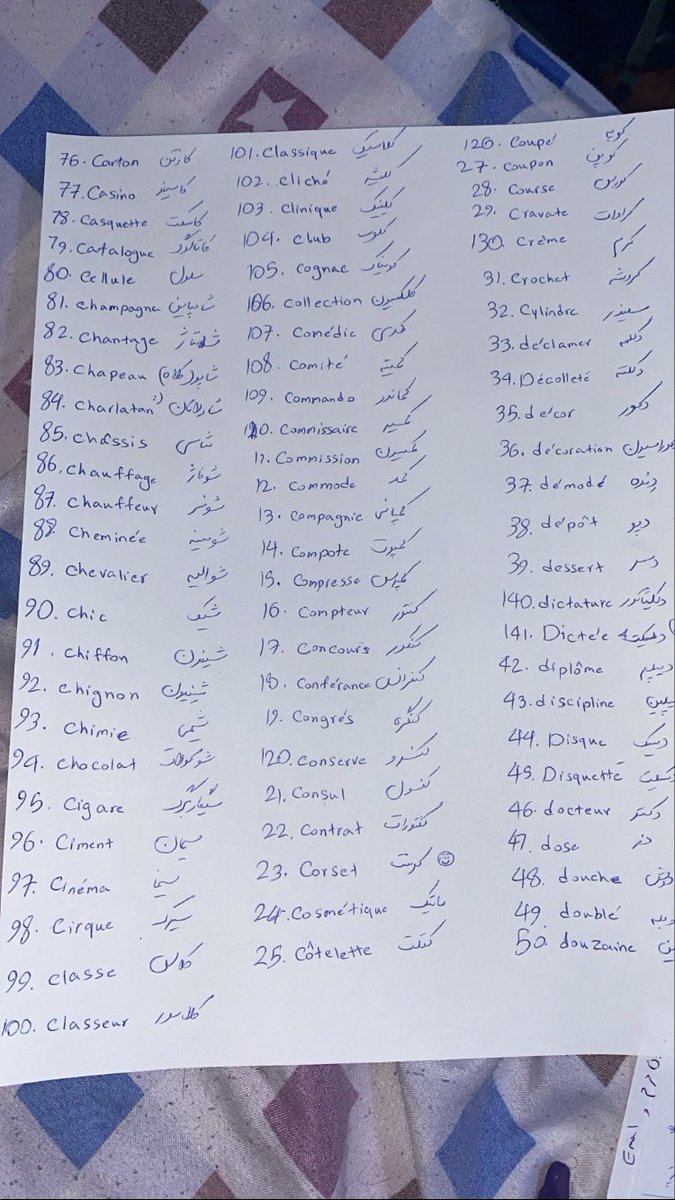 76. Carton کارتن
77. Casino کاسینو
78. Casquette کاسکت
79. Catalogue کاتالوگ
80. Cellule سلول
81. Champagne شامپاین
82. Chantage شانتاژ
83. Chapeau شاپو (کلاه)
84. Charlatan شارلاتان
85. Châssis شاسی
86. Chauffage شوفاژ
87. Chauffeur شوفر
88. Cheminée شومینه
89. Chevalier شوالیه
90. Chic شیک
91. Chiffon
92. Chignon شینیون
93. Chimie شیمی
94. Chocolat شوکولات
95. Cigare
96. Ciment سیمان
97. Cinéma سینما
98. Cirque سیرک
99. Classe کلاس
100. Classeur کلاسور
101. Classique کلاسیک
102. Cliché کلیشه
103. Clinique کلینیک
104. Club کلوب
105. Cognac کونیاک
106. Collection کلکسیون
107. Comédie کمدی
108. Comité کمیته
109. Commando کماندو
110. Commissaire کمیسر
11. Commission کمیسیون
12. Commode کمد
13. Compagnie کمپانی
14. Compote کمپوت
15. Compresse کمپرس
16. Compteur کنتور
17. Concours کنکور
18. Conférance کنفرانس
19. Congrés کنگره
120. Conserve کنسرو
21. Consul کنسول
22. Contrat کنتورات
23. Corset کرست
24. Cosmétique ماتیک
25. Côtelette کتلت
126. Coupé کوپه
27. Coupon کوپن
28. Course کورس
29. Cravate کراوات
130. Crème کرم
31. Crochet کروشه
32. Cylindre سیلندر
33. déclamer دکلمه
34. Décolleté دکلته
35. décor دکور
36. décoration
37. démodé دمده
38. dépôt دپو
39. dessert دسر
140. dictature دیکتاتور
141. Dictée دیکته
42. diplôme دیپلم
43. discipline
44. Disque دیسک
45. Disquette
46. docteur دکتر
47. dose دز
48. douche دوش
49. doublé دوبله
50. douzaine